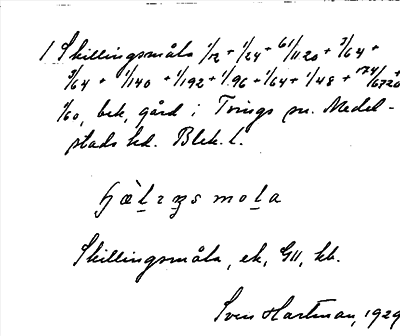 1 Skillingsmåla 1/12 + 1/24 + 61/1120 + 3/64 +
9/64 + 1/140 + 1/192 + 1/96 + 1/64 + 1/48 + 74/6720 +
1/60, bek. gård i Tvings sn. Medel-
stads hd. Blek. l.
Skillingsmåla, ek, GII, kb.
Sven Hartman, 1929